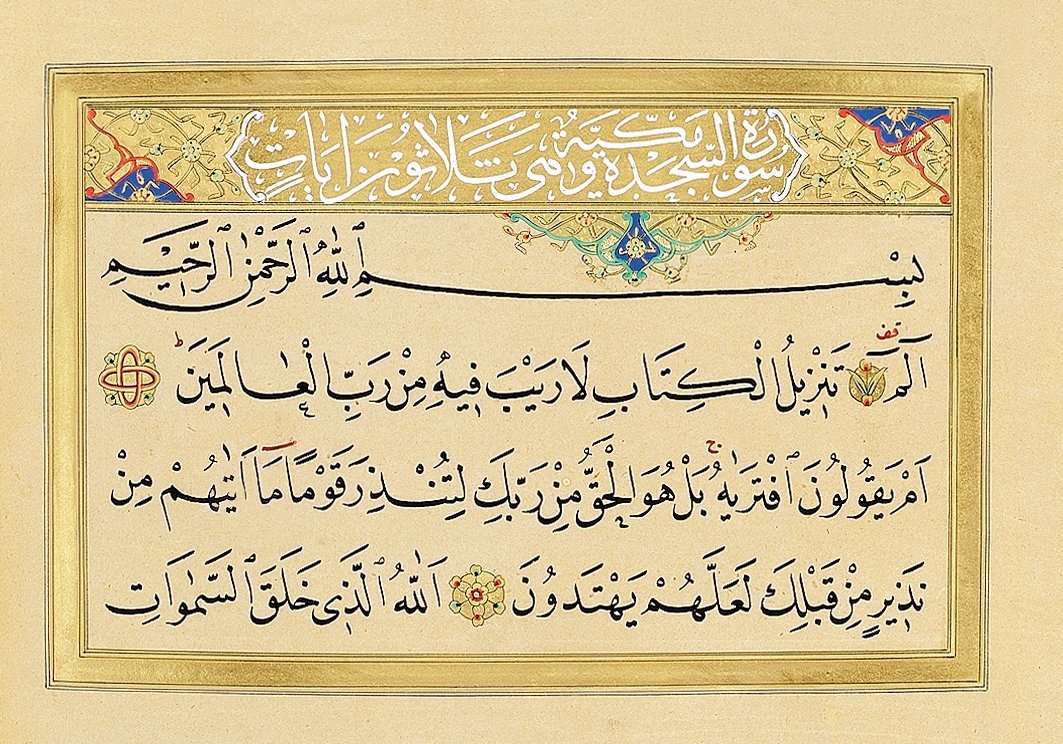 سُورَةُ السَّجْدَةِ مَكِّيَّةٌ وَهِيَ ثَلَاثُونَ اٰيَاتٍ
بِسْمِ ٱللّٰهِ ٱلرَّحْمٰنِ ٱلرَّحِيمِ
الٓمٓ قف تَنْزِيلُ الْكِتَابِ لَا رَيْبَ فِيهِ مِنْ رَبِّ الْعَالَمِينَ ط
اَمْ يَقُولُونَ ٱفْتَرٰيهُ ج بَلْ هُوَ الْحَقُّ مِنْ رَبِّكَ لِتُنْذِرَ قَوْمًا مَٓا اَتٰيهُمْ مِنْ
نَذِيرٍ مِنْ قَبْلِكَ لَعَلَّهُمْ يَهْتَدُونَ اَللّٰهُ ٱلَّذِي خَلَقَ ٱلسَّمٰوَاتِ